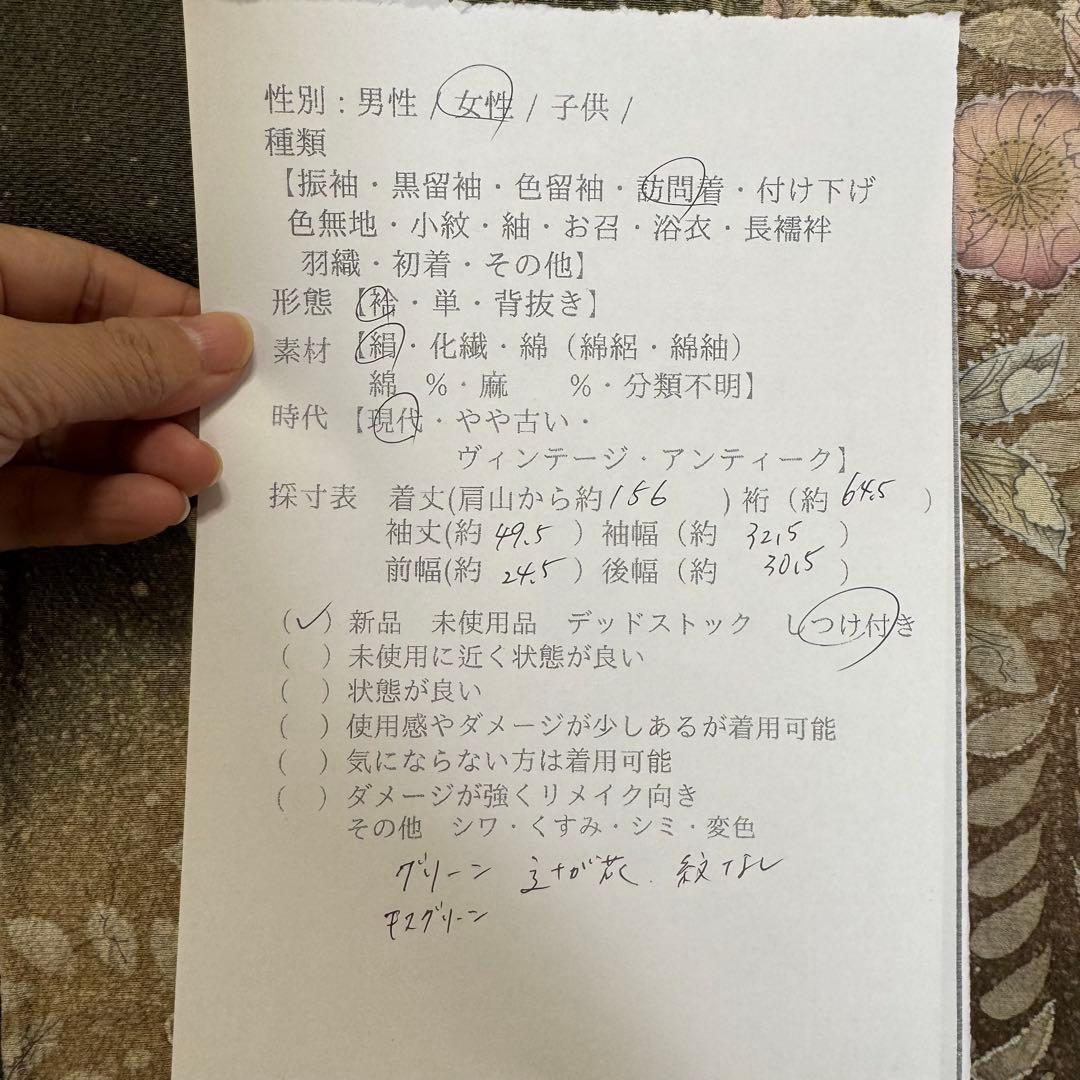 性別：男性 / 女性 / 子供 /
種類
【振袖・黒留袖・色留袖・訪問着・付け下げ
色無地・小紋・紬・お召・浴衣・長襦袢
羽織・初着・その他】
形態【袷・単・背抜き】
素材【絹・化繊・綿（綿絽・綿紬）
綿 %・麻 %・分類不明】
時代【現代・やや古い・
ヴィンテージ・アンティーク】
採寸表 着丈(肩山から約156 ) 裄（約 64.5 ）
袖丈(約 49.5 ）袖幅（約 32.5 ）
前幅(約 24.5 ）後幅（約 30.5 ）
(✓) 新品 未使用品 デッドストック しつけ付き
( ) 未使用に近く状態が良い
( ) 状態が良い
( ) 使用感やダメージが少しあるが着用可能
( ) 気にならない方は着用可能
( ) ダメージが強くリメイク向き
その他 シワ・くすみ・シミ・変色
グリーン 花 紋なし
モスグリーン